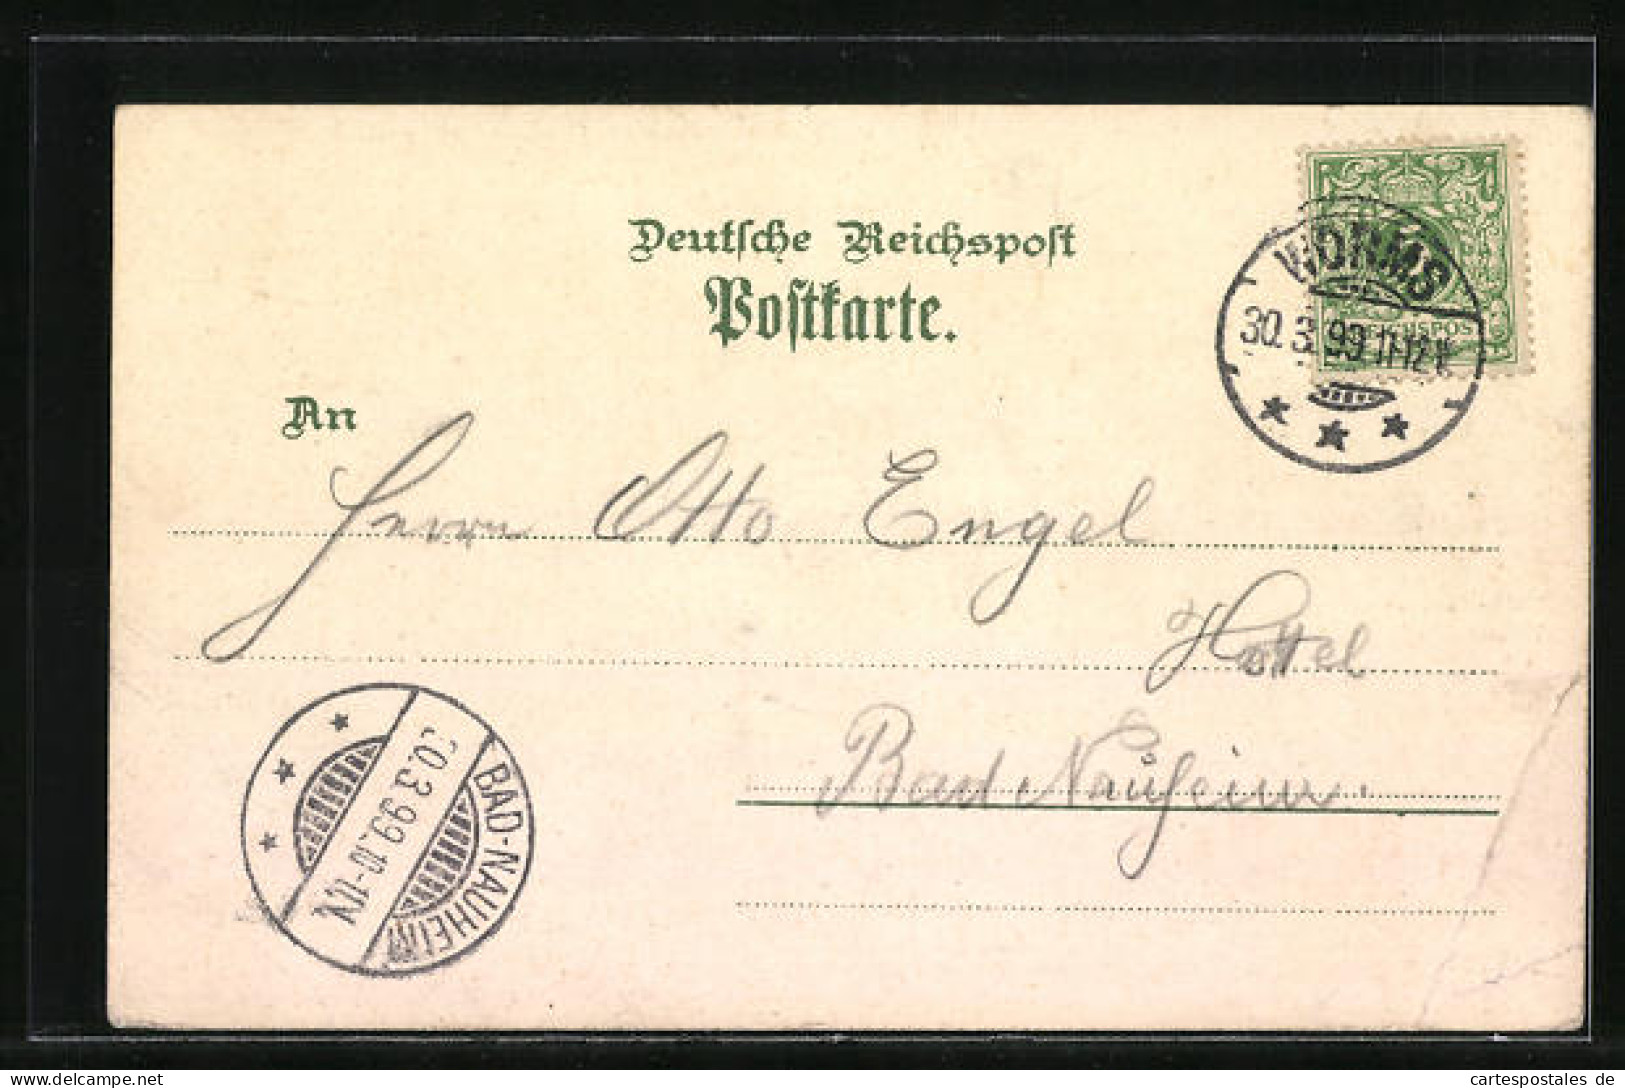 Deutsche Reichspost
Postkarte.
WORMS
30.3.99 11-12V
REICHSPOST
An
Herrn Otto Engel
Hottel
Bad Nauheim.
BAD-NAUHEIM
30.3.99.10-11N.
cartespostales de